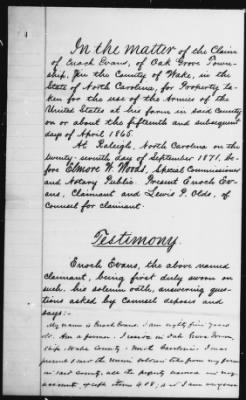 In the matter of the Claim
of Enoch Evans, of Oak Grove Town-
ship, in the County of Wake, in the
State of North Carolina, for Property ta-
ken for the use of the Armies of the
United States at his farm in said county
on or about the fifteenth and subsequent
days of April 1865.
At Raleigh, North Carolina on the
twenty-seventh day of September 1871, be-
fore Elmore W. Woods, Special Commissioner
and Notary Public. Present Enoch Ev-
ans, Claimant and Lewis P. Olds, of
counsel for claimant.
Testimony.
Enoch Evans, the above named
claimant, being first duly sworn on
such, his solemn oath, answering ques-
tions asked by Counsel deposes and
says:-
My name is Enoch Evans. I am eighty five years
old. Am a farmer. I reside in Oak Grove Town-
ship Wake County North Carolina. I was
present & saw the union soldiers take from my farm
in said county, all the property named in my
account, except items 4 & 8; and I am